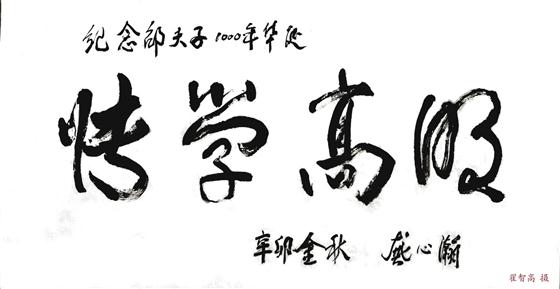 纪念邵夫子1000年华诞
博学高明
辛卯金秋 龚心瀚
翟智高 摄